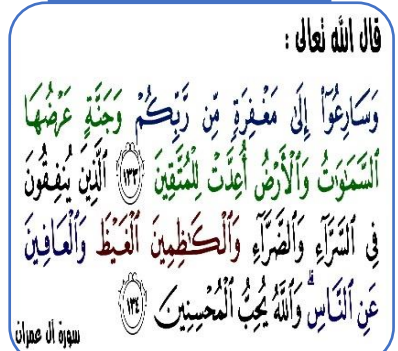 قال الله تعالى :
وَسَارِعُوٓا۟ إِلَىٰ مَغْفِرَةٍ مِّن رَّبِّكُمْ وَجَنَّةٍ عَرْضُهَا
ٱلسَّمَٰوَٰتُ وَٱلْأَرْضُ أُعِدَّتْ لِلْمُتَّقِينَ ١٣٣ ٱلَّذِينَ يُنفِقُونَ
فِى ٱلسَّرَّآءِ وَٱلضَّرَّآءِ وَٱلْكَٰظِمِينَ ٱلْغَيْظَ وَٱلْعَافِينَ
عَنِ ٱلنَّاسِ ۗ وَٱللَّهُ يُحِبُّ ٱلْمُحْسِنِينَ ١٣٤
سورة آل عمران